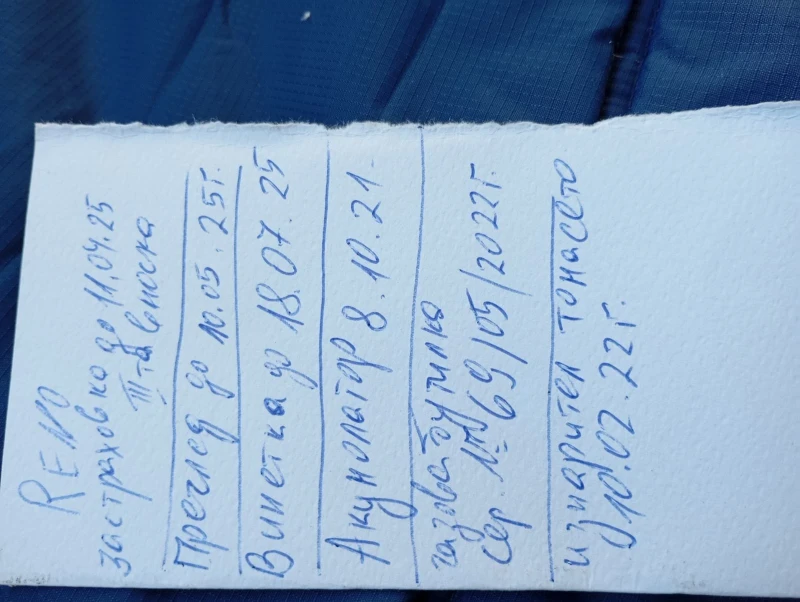 RENO
застраховка до 11.04.25
II-ра вноска
Преглед до 10.05.25г.
Винетка до 18.07.25
Акумолатор 8.10.21-
газова бутилка
сер. № 69/05/2022г.
изпарител томасето
10.02.22г.